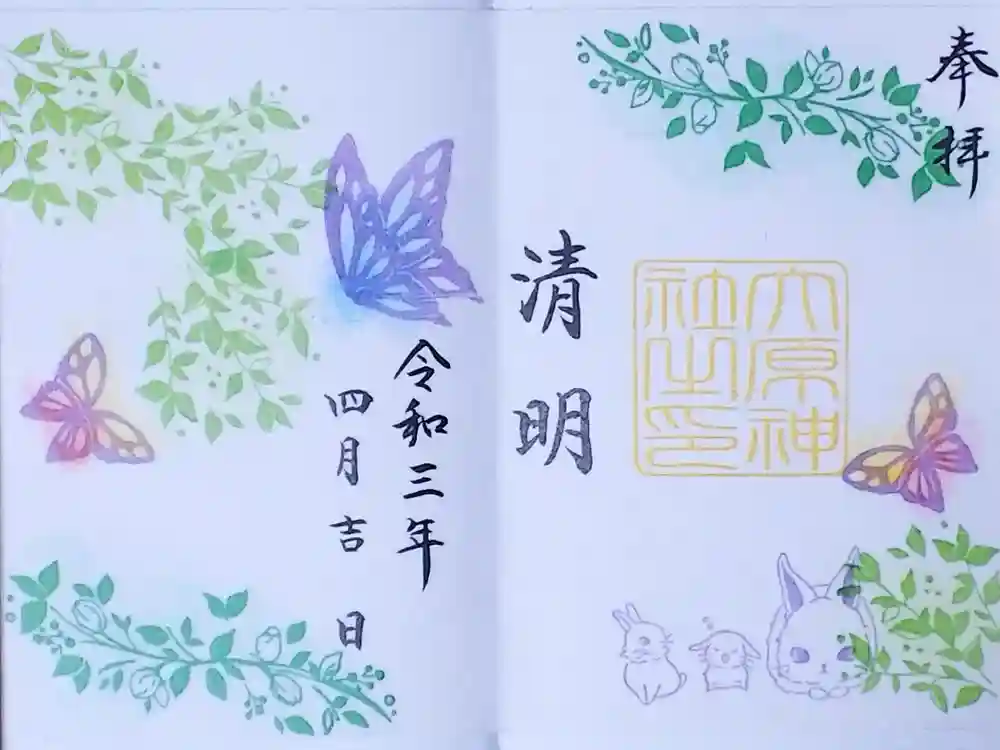 奉拝
大原神
社之印
清明
令和三年
四月吉日